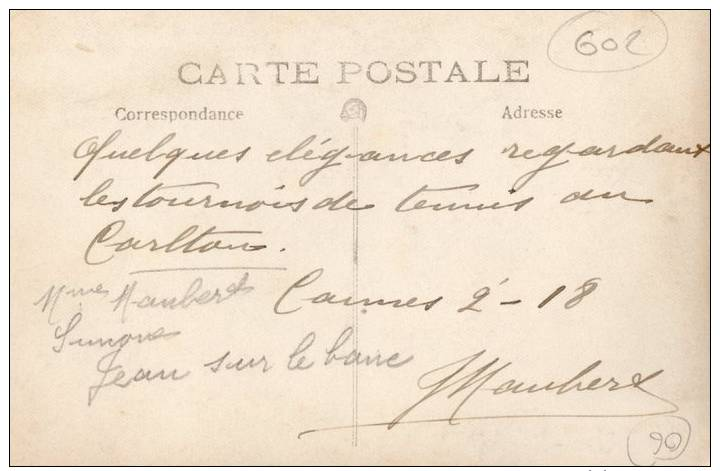 602
CARTE POSTALE
Correspondance Adresse
Quelques élégances regardant
les tournois de tennis au
Carlton.
Mme Maubert Cannes 2 - 18
Simone
Jean sur le banc
JMaubert
90